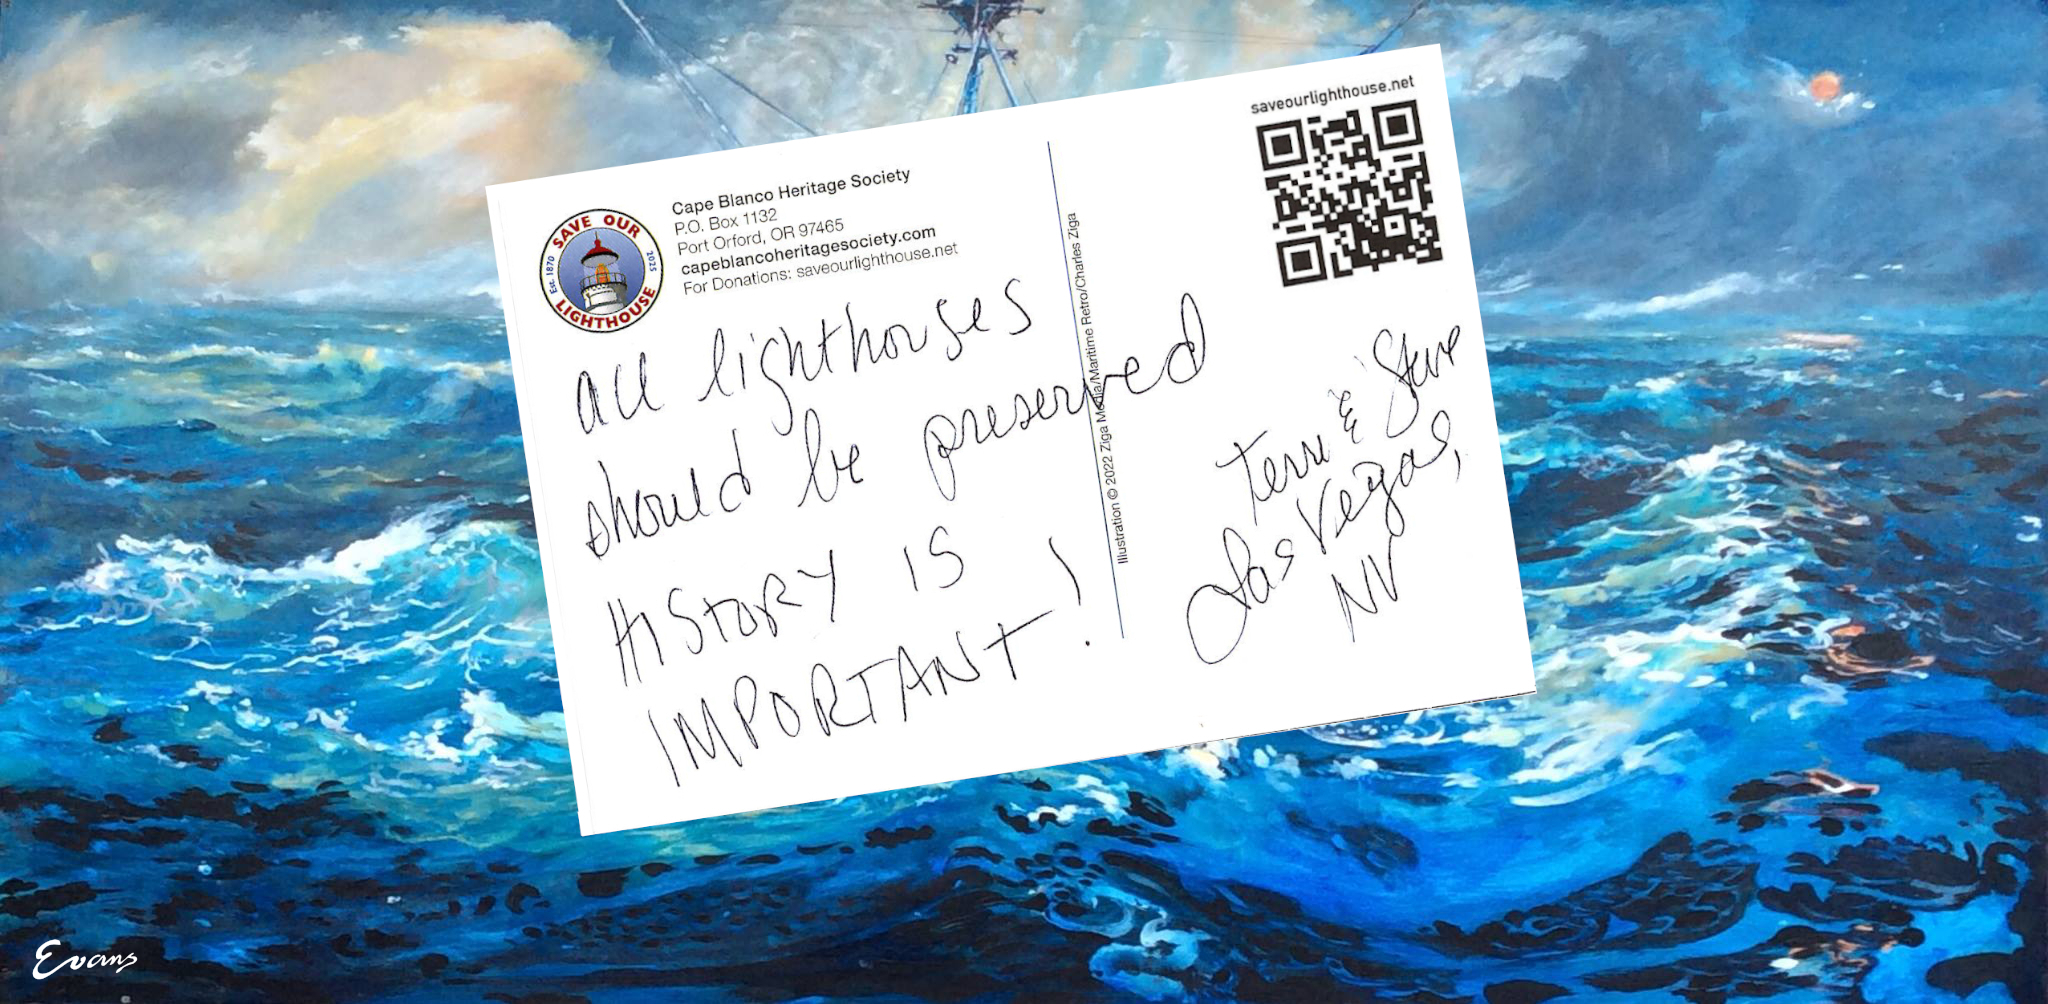 saveourlighthouse.net
SAVE OUR
Est. 1870
2025
LIGHTHOUSE
Cape Blanco Heritage Society
P.O. Box 1132
Port Orford, OR 97465
capeblancoheritagesociety.com
For Donations: saveourlighthouse.net
all lighthouses
should be preserved
HISTORY IS
IMPORTANT!
Illustration © 2022 Ziga Media/Maritime Retro/Charles Ziga
Terri & Steve
Las Vegas,
NV
Evans